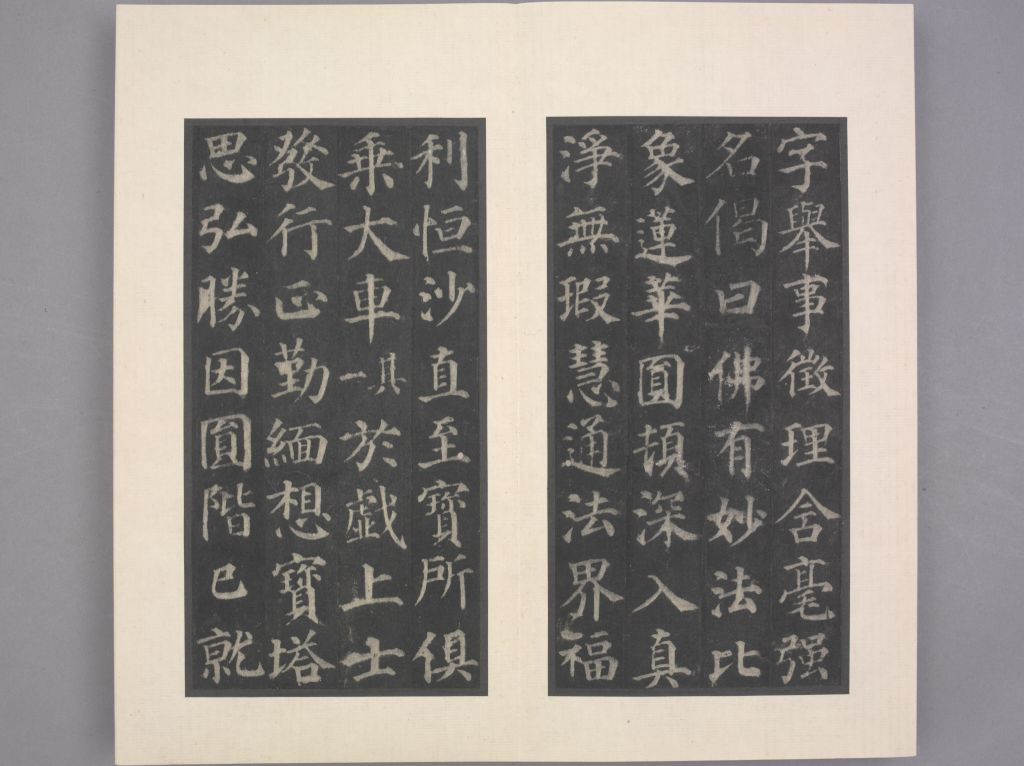 字舉事徵理含毫强
名偈曰佛有妙法比
象蓮華圓頓深入真
淨無瑕慧通法界福
利恒沙直至寶所俱
乗大車一其於戯上士
發行正勤緬想寶塔
思弘勝因圓階已就